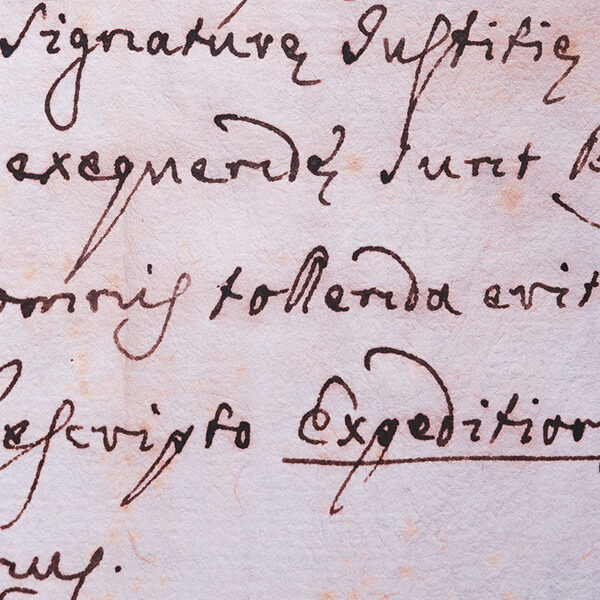 Signaturę Justitię
exequendę sunt
omnis tollenda erit
escripto Expedition
rus.